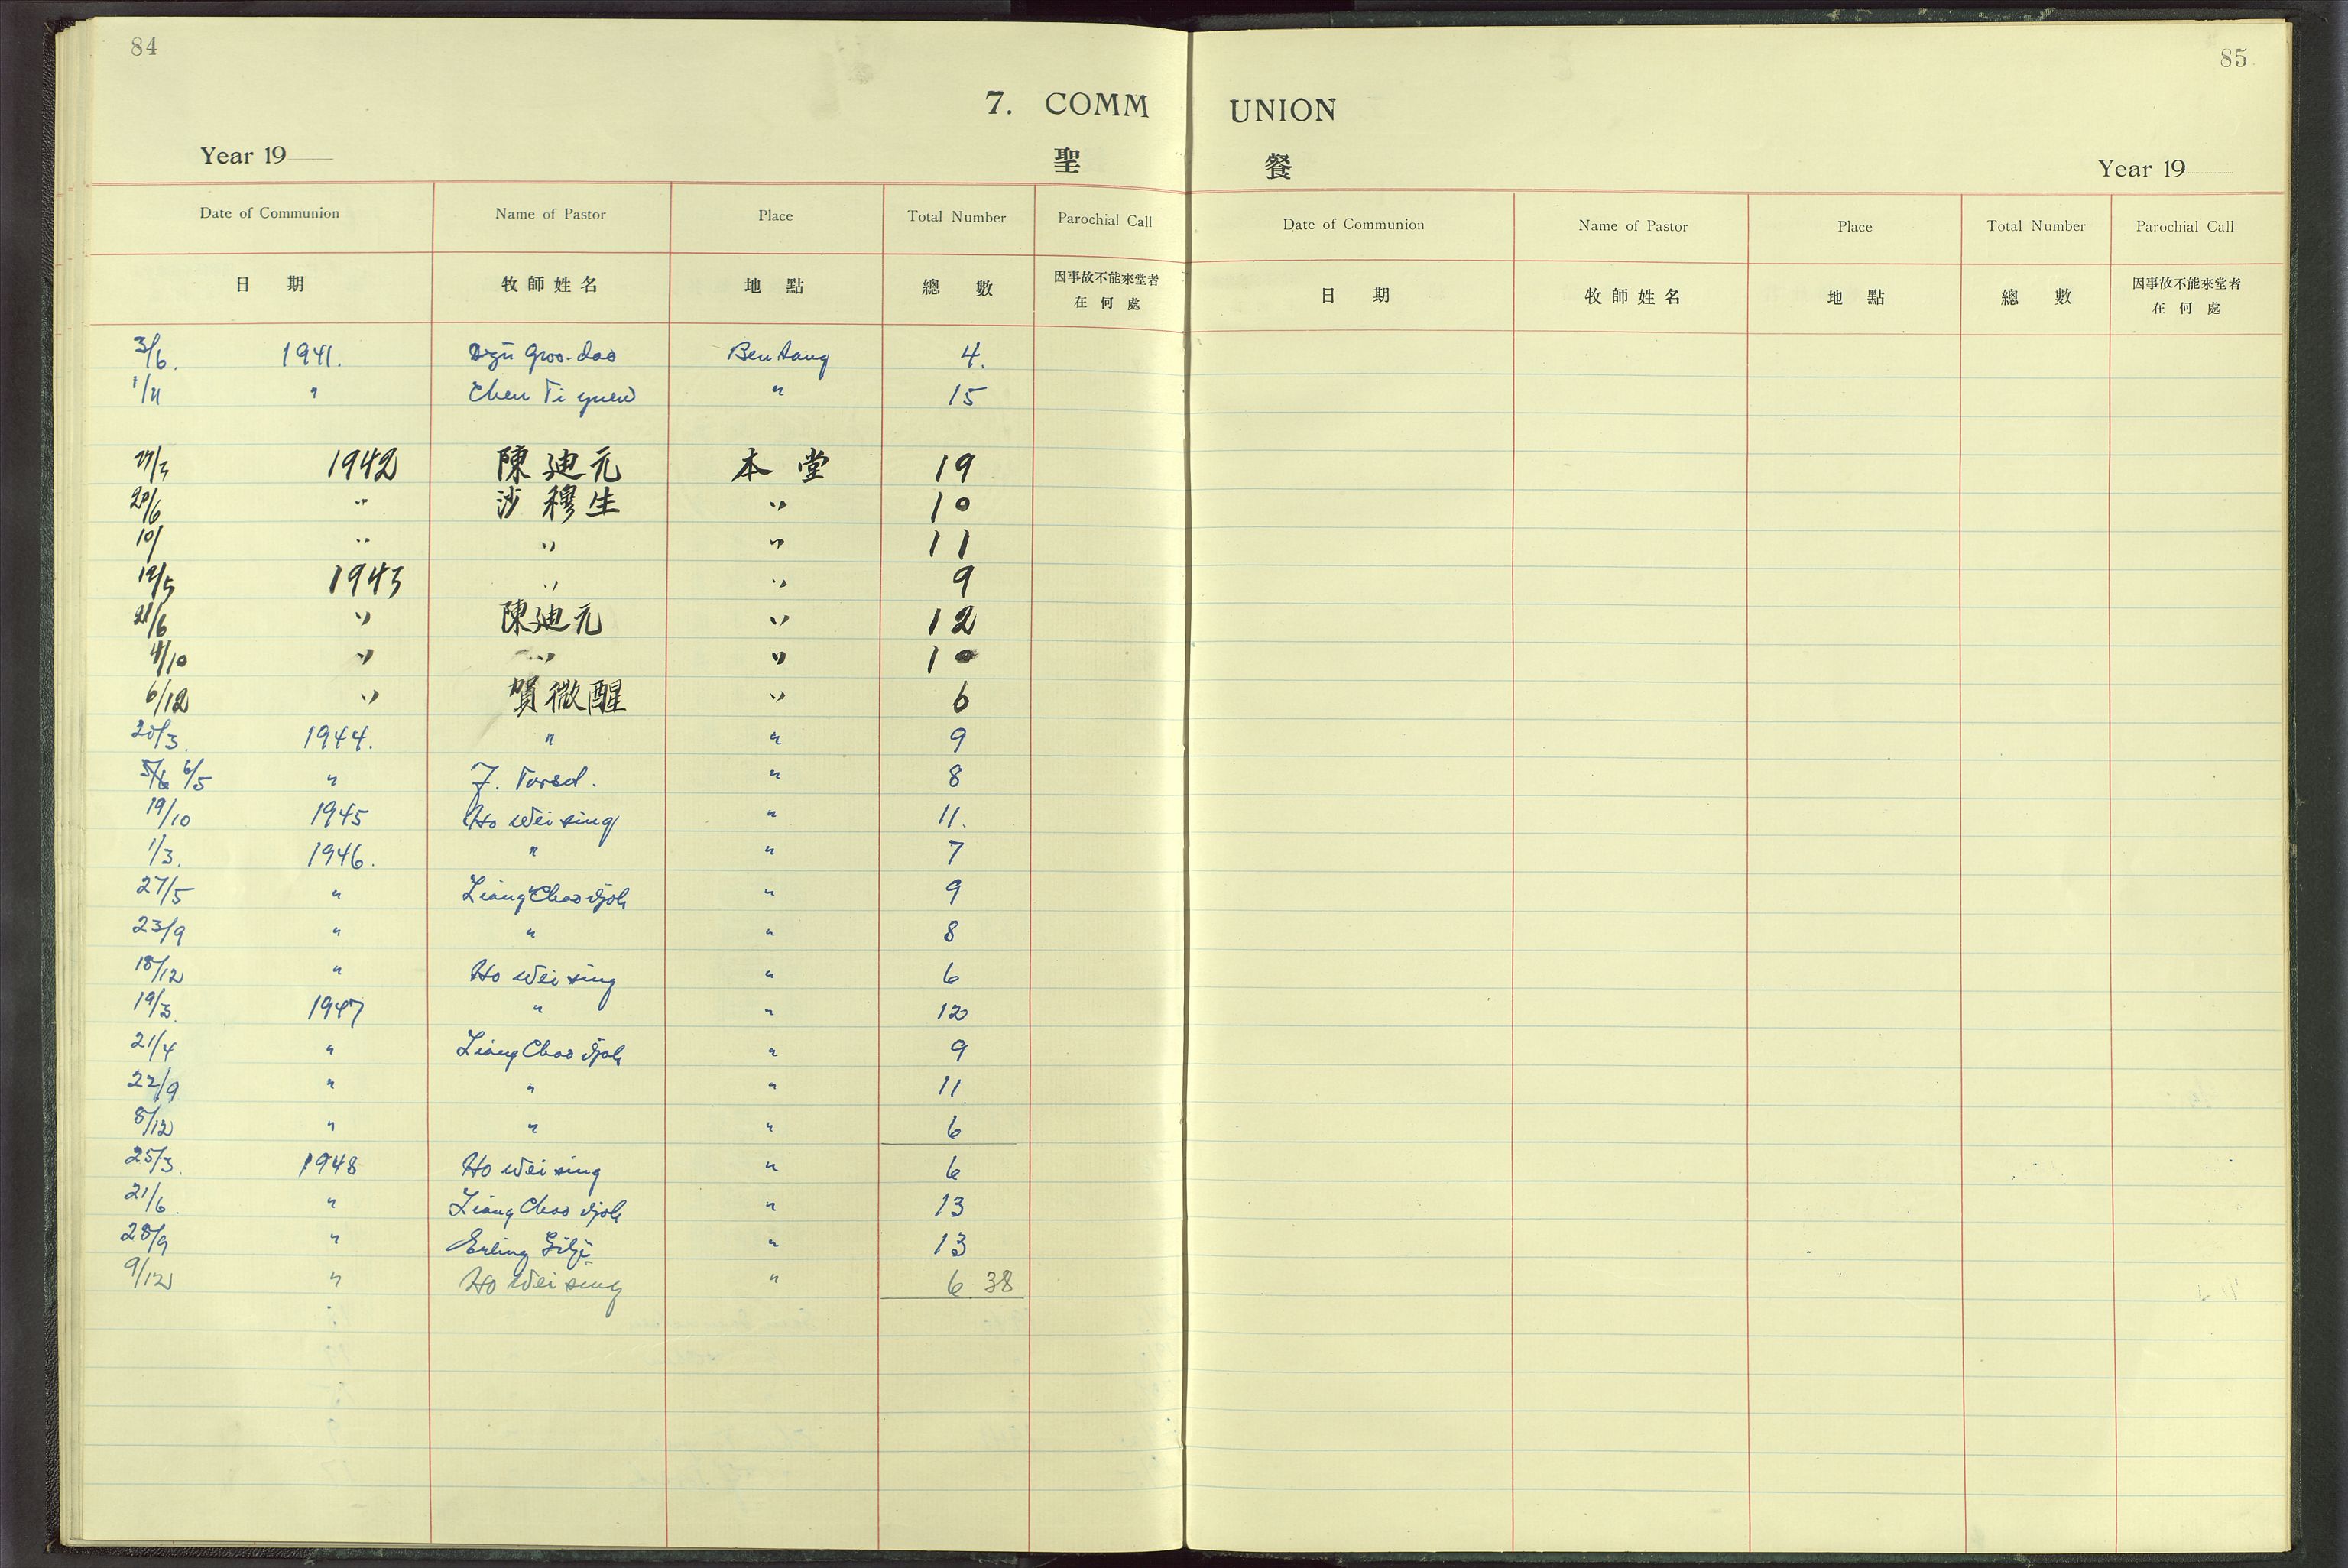 84
85
7. COMM
UNION
Year 19
聖
餐
Year 19
Date of Communion Name of Pastor Place Total Number Parochial Call
Date of Communion Name of Pastor Place Total Number Parochial Call
日 期 牧師姓名 地 點 總 數 因事故不能來堂者
在 何 處
日 期 牧師姓名 地 點 總 數 因事故不能來堂者
在 何 處
3/6. 1941. Bentang 4.
1/11 " Chen Ti yuen " 15
1942 陳迪元 本堂 19
20/6 " 沙穆生 " 10
10/ " " " 11
19/5 1943 " " 9
21/6 " 陳迪元 " 12
4/10 " " " 10
6/12 " 賀微醒 " 6
20/3. 1944. " " 9
5/6 6/5 " J. Torsd. " 8
19/10 1945 Ho Wei sing " 11.
1/3. 1946. " " 7
27/5 " Liang Chao djoh " 9
23/9 " " " 8
18/12 " Ho Wei sing " 6
19/3. 1947 " " 12
21/4 " Liang Chao djoh " 9
22/9 " " " 11
8/12 " " " 6
25/3. 1948 Ho Wei sing " 6
21/6. " Liang Chao djoh " 13
28/9 " Erling Gilje " 13
9/12 " Ho Wei sing " 6 38